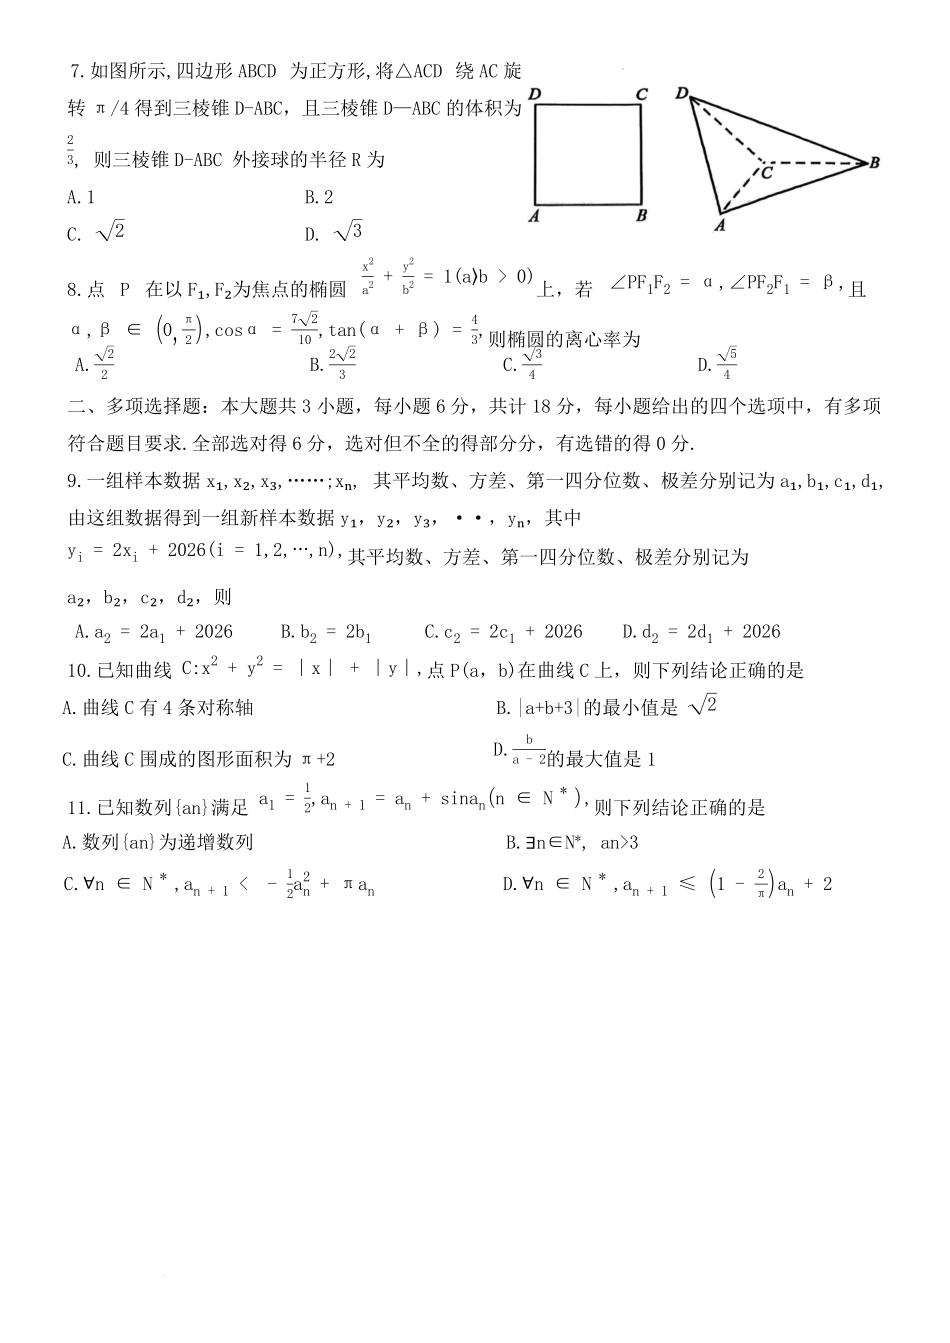 7.如图所示,四边形 ABCD 为正方形,将△ACD 绕 AC 旋
转 π/4 得到三棱锥 D-ABC，且三棱锥 D—ABC 的体积为
2/3, 则三棱锥 D-ABC 外接球的半径 R 为
A.1 B.2
C. √2 D. √3
D C
A B
D
C B
A
8.点 P 在以 F₁,F₂为焦点的椭圆 x²/a² + y²/b² = 1(a⟩b > 0)上，若 ∠PF₁F₂ = α,∠PF₂F₁ = β,且
α,β ∈ (0,π/2),cosα = 7√2/10,tan(α + β) = 4/3,则椭圆的离心率为
A.√2/2 B.2√2/3 C.√3/4 D.√5/4
二、多项选择题：本大题共 3 小题，每小题 6 分，共计 18 分，每小题给出的四个选项中，有多项
符合题目要求.全部选对得 6 分，选对但不全的得部分分，有选错的得 0 分.
9.一组样本数据 x₁,x₂,x₃,……;xₙ, 其平均数、方差、第一四分位数、极差分别记为 a₁,b₁,c₁,d₁,
由这组数据得到一组新样本数据 y₁，y₂，y₃，··，yₙ，其中
yᵢ = 2xᵢ + 2026(i = 1,2,⋯,n),其平均数、方差、第一四分位数、极差分别记为
a₂，b₂，c₂，d₂，则
A.a₂ = 2a₁ + 2026 B.b₂ = 2b₁ C.c₂ = 2c₁ + 2026 D.d₂ = 2d₁ + 2026
10.已知曲线 C:x² + y² = |x| + |y|,点 P(a，b)在曲线 C 上，则下列结论正确的是
A.曲线 C 有 4 条对称轴 B.|a+b+3|的最小值是 √2
C.曲线 C 围成的图形面积为 π+2 D.b/(a - 2)的最大值是 1
11.已知数列{an}满足 a₁ = 1/2,aₙ₊₁ = aₙ + sinaₙ(n ∈ N*),则下列结论正确的是
A.数列{an}为递增数列 B.∃n∈N*, an>3
C.∀n ∈ N*,aₙ₊₁ < - 1/2aₙ² + πaₙ D.∀n ∈ N*,aₙ₊₁ ≤ (1 - 2/π)aₙ + 2